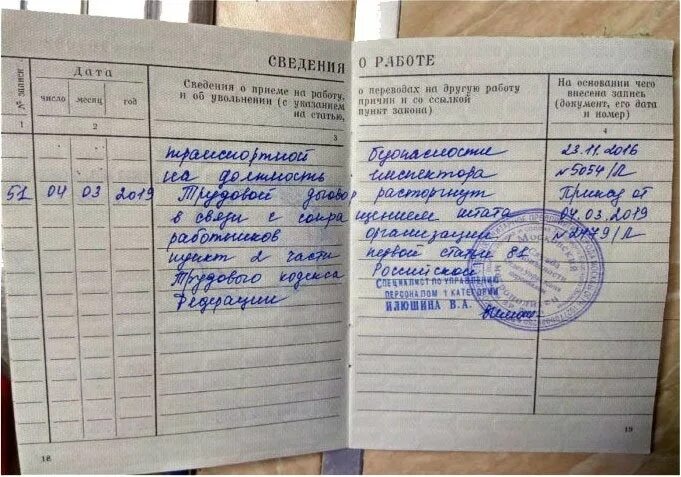 СВЕДЕНИЯ О РАБОТЕ
№ записи
Дата
Сведения о приеме на работу, о переводах на другую работу
и об увольнении (с указанием причин и со ссылкой
на статью, пункт закона)
На основании чего
внесена запись
(документ, его дата
и номер)
число месяц год
1 2 3 4
транспортной безопасности 23.11.2016
на должность инспектора №5054/Л
51 04 03 2019 Трудовой договор расторгнут Приказ от
в связи с сокращением штата 04.03.2019
работников организации №2479/Л
пункт 2 части первой статьи 81
Трудового кодекса Российской
Федерации
СПЕЦИАЛИСТ ПО УПРАВЛЕНИЮ
ПЕРСОНАЛОМ 1 КАТЕГОРИИ
ИЛЮШИНА В.А.
18 19